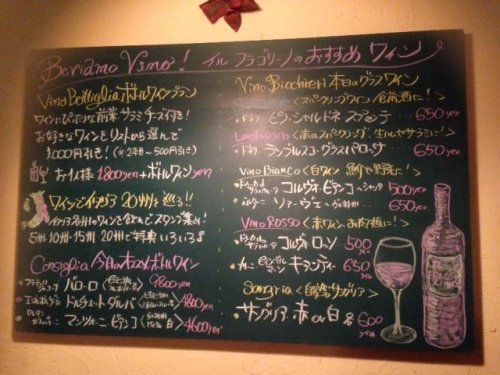 Beviamo Vino! イル フラゴリーノのおすすめ ワイン
Vino Bottiglia ボトルワインプラン
ワインにぴったりな前菜 サラミチーズ付き!
お好きなワインをリストから選んで
1,000円引き! (※2本目〜500円引き)
お1人様 1,800yen+ボトルワイン
ワインでイタリア 20州を巡ろう!!
イタリア各州のワインを飲んでスタンプ集め!
5州・10州・15州 20州で特典 いろいろ♪
Consiglia 今月のオススメボトルワイン
バローロ 9800yen
ドルチェット ダルバ 4800yen
マンツォーニ・ビアンコ 白 4600yen
Vino Bicchieri 本日のグラスワイン
<スパークリングワイン/前菜に!>
ドネリ ピノ・シャルドネ スプマンテ 650yen
Lambrusco <赤のスパークリング サラミに!>
ドネリ ランブルスコ・グラスパロッサ 650
Vino Bianco <白ワイン 魚や野菜に!>
コルヴォ・ビアンコ 500yen
ソアーヴェ 650yen
Vino Rosso <赤ワイン お肉類に!>
コルヴォ ロッソ 500yen
キャンティ 650yen
Sangria <自家製サングリア>
サングリア 赤 or 白 各600yen